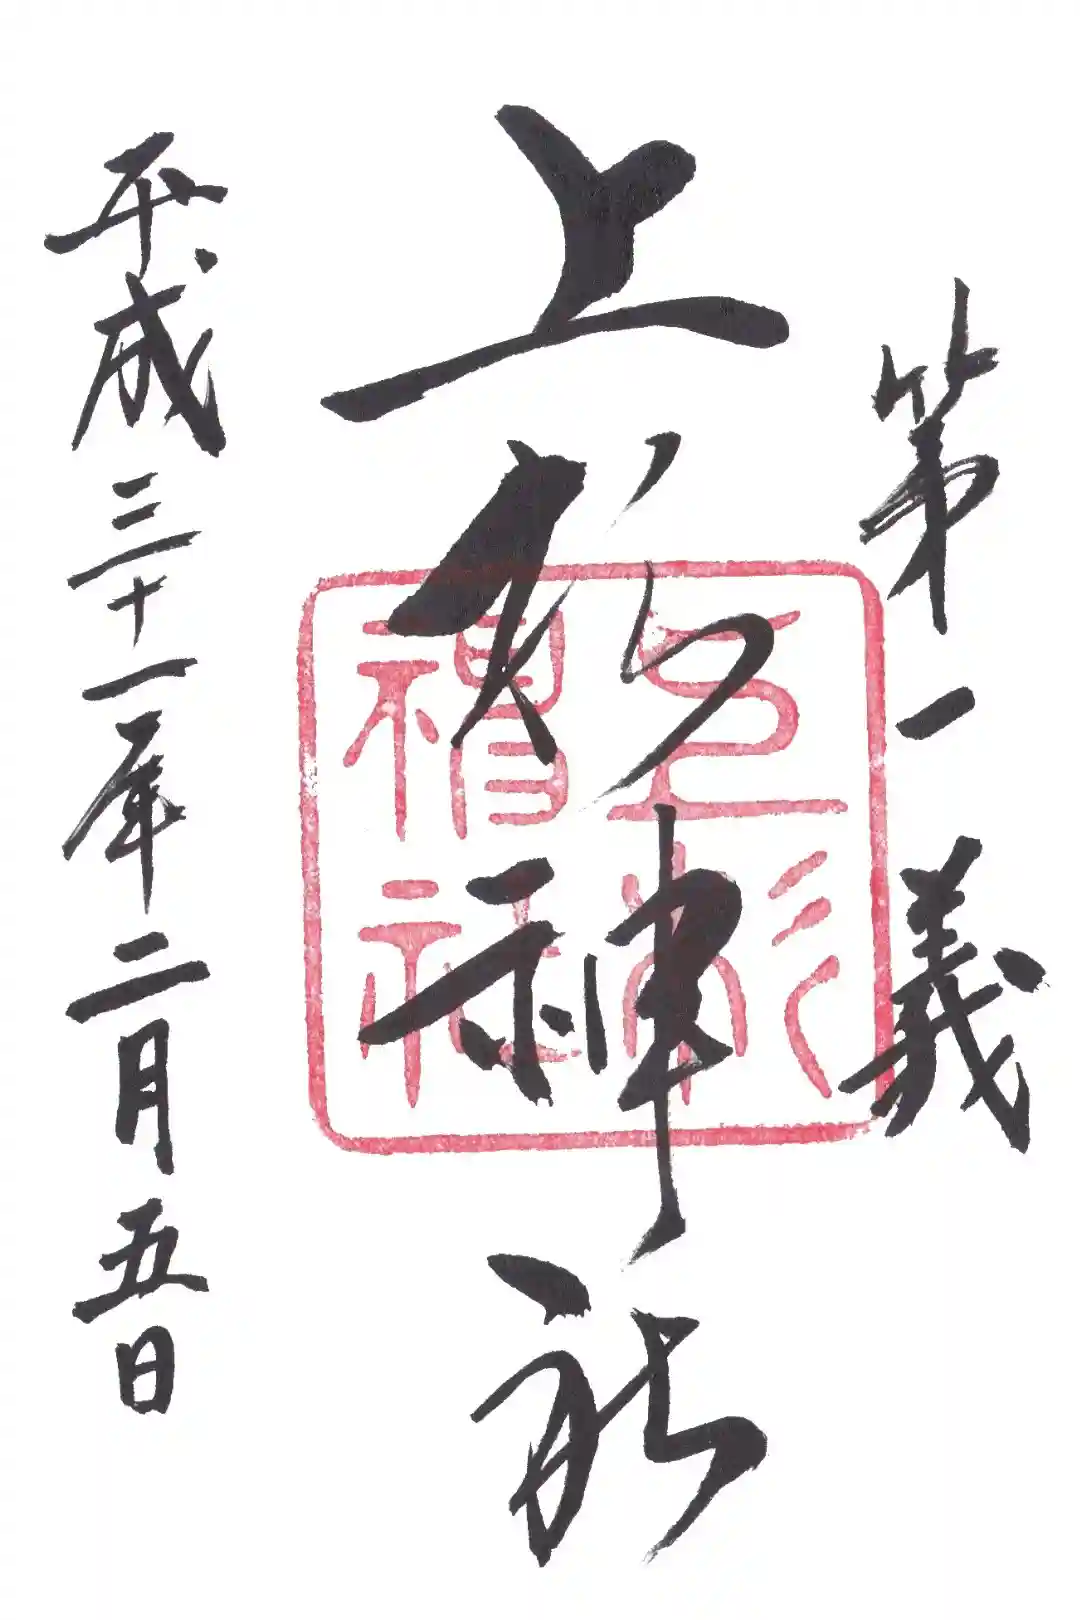 第一義
上杉神社
平成三十一年二月五日
上杉
神社